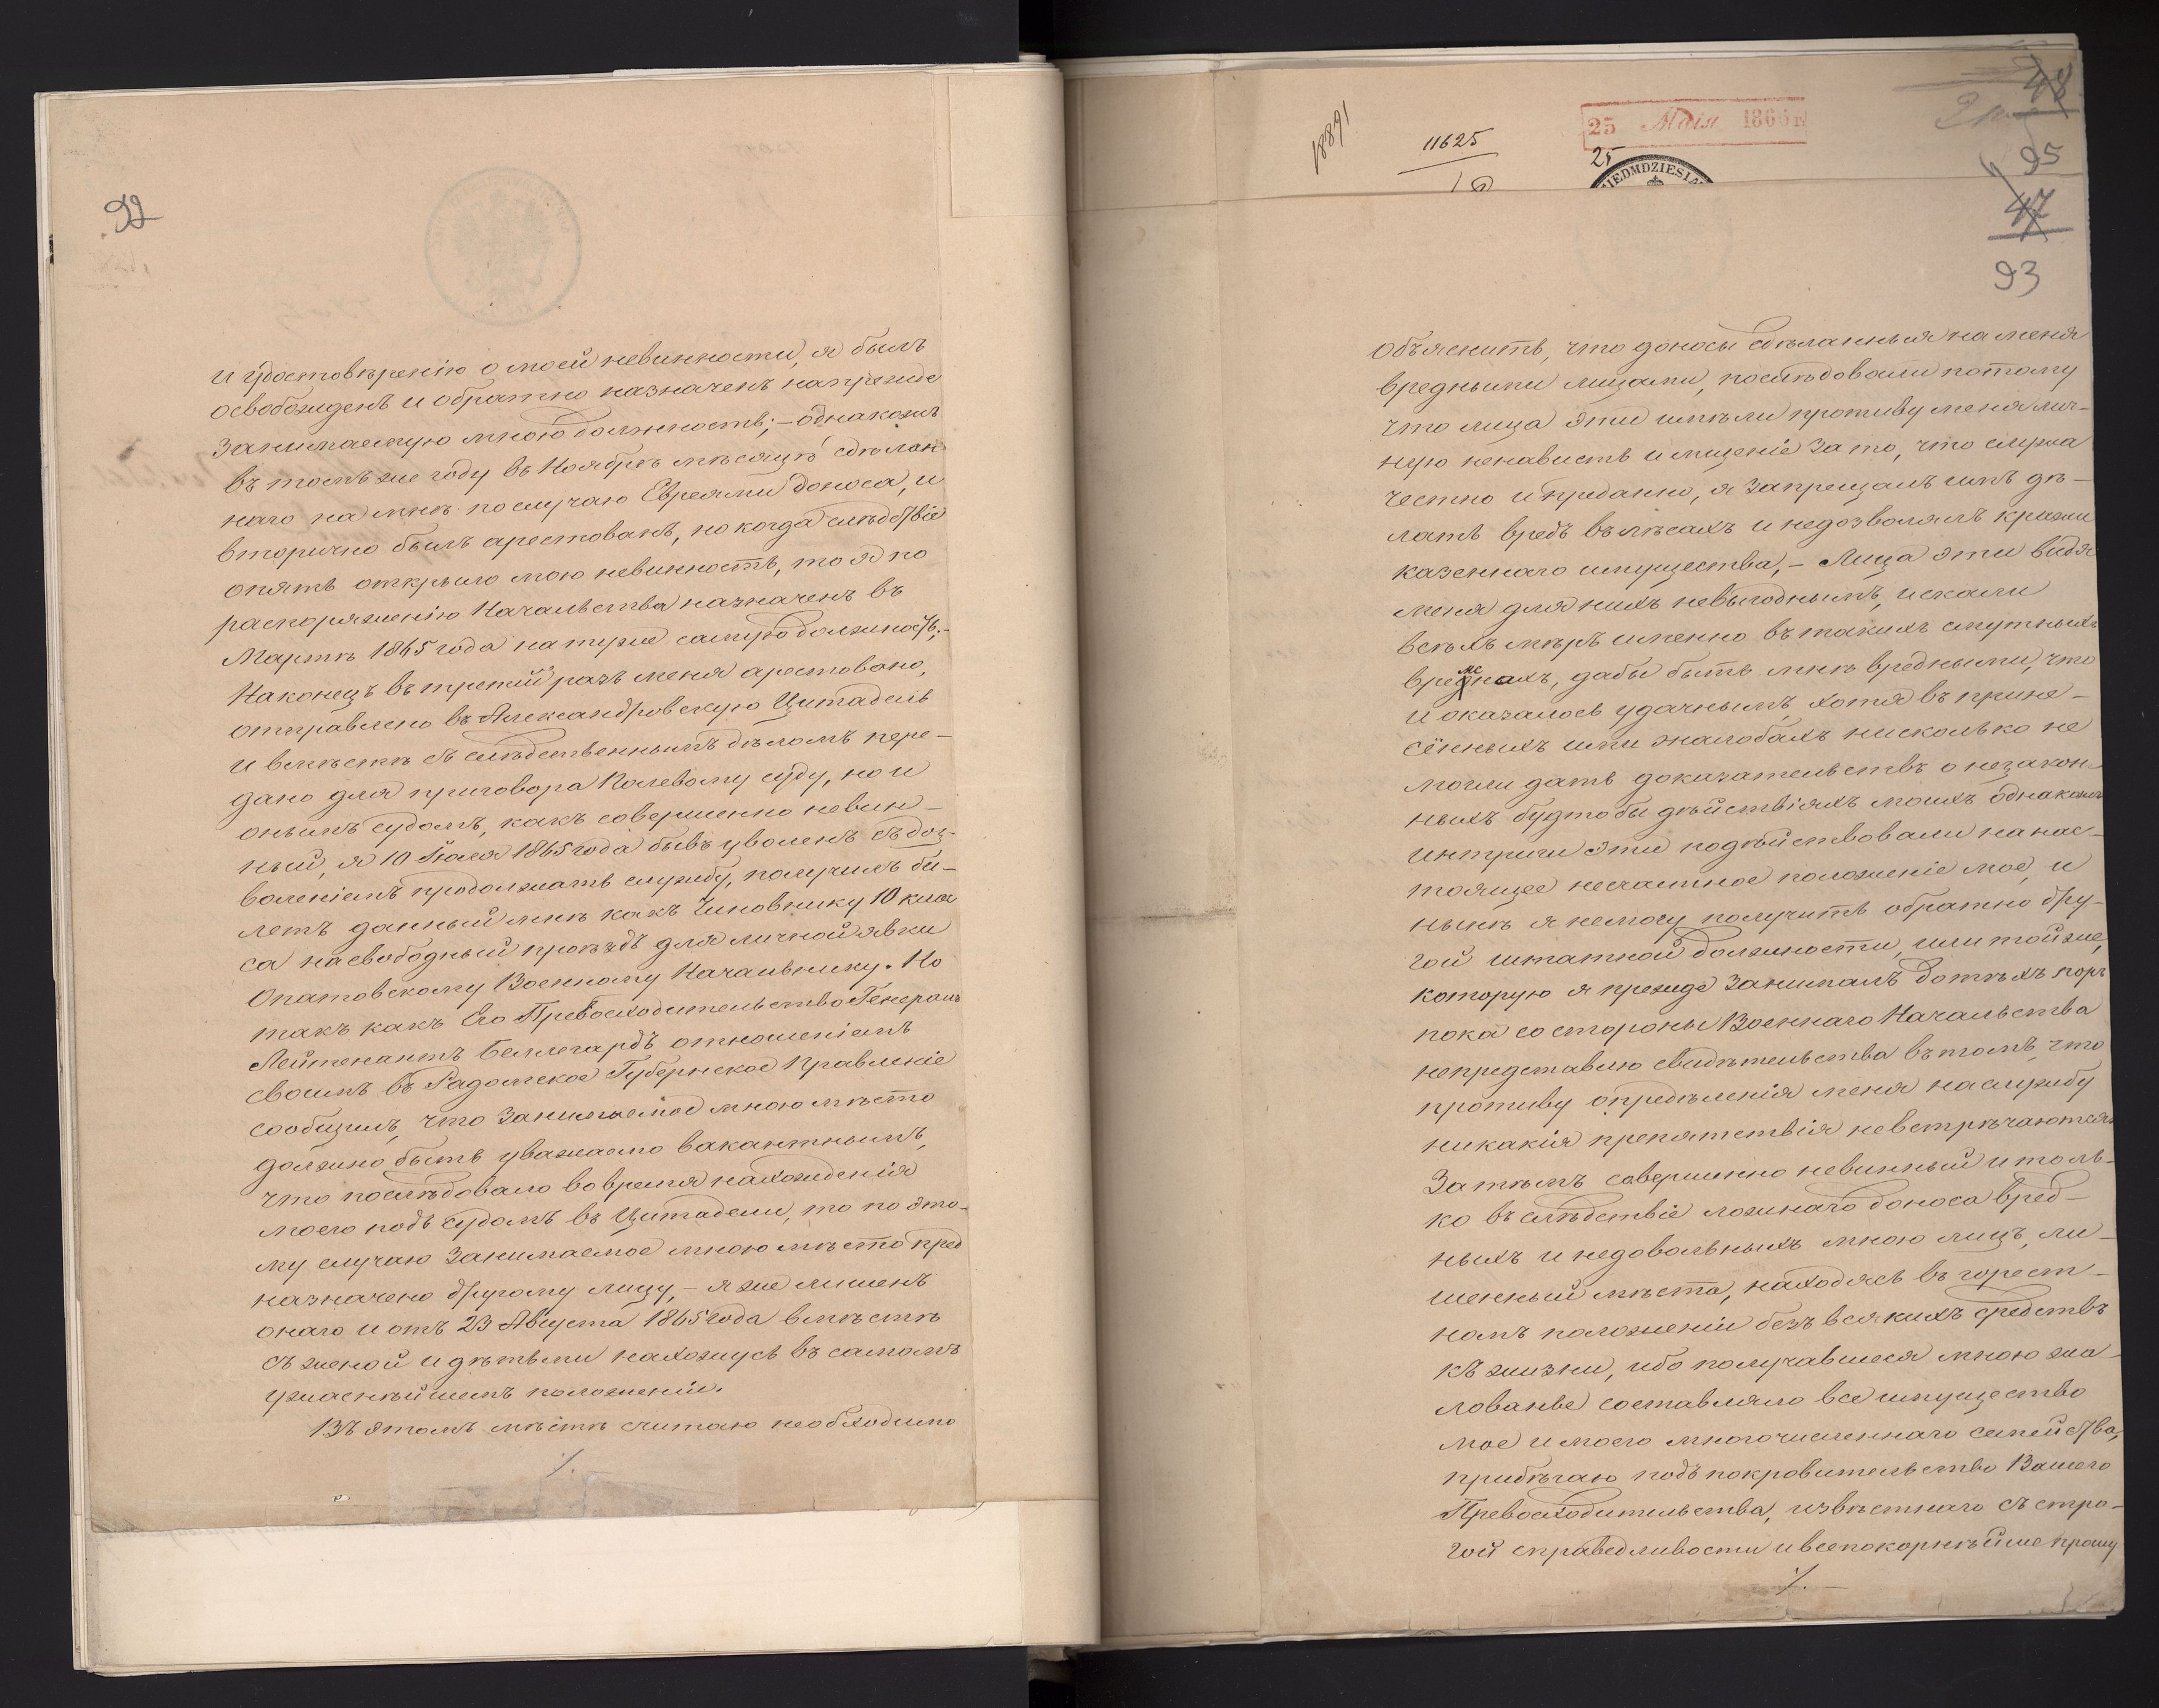 92
и удостовѣренію о моей невинности, я былъ
освобожденъ и обратно назначенъ на прежде
занимаемую мною должность; – однакожъ
въ томъ же году въ Ноябрѣ мѣсяцѣ сдѣлан
наго на мнѣ по случаю Евреями доноса, и
вторично былъ арестованъ, но когда слѣдствіе
опять открыло мою невинность, то я по
распоряженію Начальства назначенъ въ
Мартѣ 1865 года на туже самую должность; –
Наконецъ въ третій разъ меня арестовано,
отправлено въ Александровскую Цитадель
и вмѣстѣ съ слѣдственнымъ дѣломъ пере–
дано для приговора Полевому суду, но и
онымъ судомъ, какъ совершенно невин–
ный, я 10 Іюля 1865 года бывъ уволенъ съ доз–
воленіемъ продолжать службу, получилъ би–
летъ данный мнѣ какъ Чиновнику 10 клас
са на свободный проѣздъ для личной явки
Опатовскому Военному Начальнику. Но
такъ какъ Его Превосходительство Генералъ
Лейтенантъ Беллегардъ отношеніемъ
своимъ въ Радомское Губернское Правленіе
сообщилъ, что занимаемое мною мѣсто
должно быть уважаемо вакантнымъ,
что послѣдовало во время нахожденія
моего подъ судомъ въ Цитадели, то по это–
му случаю занимаемое мною мѣсто пред
назначено другому лицу, – я же лишенъ
онаго и отъ 23 Августа 1865 года вмѣстѣ
съ женой и дѣтьми нахожусь въ самомъ
ужаснѣйшемъ положеніи.
Въ этомъ мѣстѣ считаю необходимо
./.
18891
11625
25 Мая 186
25
IEDMDZIESIA
48
95
47
93
объяснить, что доносы сдѣланныя на меня
вредными лицами, послѣдовали потому
что лица эти имѣли противу меня лич–
ную ненависть и мщеніе за то, что служа
честно и преданно, я запрещалъ имъ дѣ–
лать вредъ въ лѣсахъ и недозволялъ кражи
казеннаго имущества, – Лица эти видя
меня для нихъ невыгоднымъ, искали
всѣхъ мѣръ именно въ такихъ смутныхъ
временахъ, дабы быть мнѣ вредными, что
и оказалось удачнымъ, хотя въ прине–
сённыхъ ими жалобахъ нисколько не
могли дать доказательствъ о незакон–
ныхъ будто бы дѣйствіяхъ моихъ однакожъ
интриги эти подѣйствовали на нас–
тоящее несчастное положеніе мое, и
нынѣ я немогу получить обратно дру–
гой штатной должности, или той же,
которую я прежде занималъ до тѣхъ поръ
пока со стороны Военнаго Начальства
непредставлю свидѣтельства въ томъ, что
противу опредѣленія меня на службу
никакія препятствія невстрѣчаются.
Затѣмъ совершенно невинный и толь–
ко въ слѣдствіе ложнаго доноса вред–
ныхъ и недовольныхъ мною лицъ, ли–
шенный мѣста, находясь въ горест–
номъ положеніи безъ всякихъ средствъ
къ жизни, ибо получавшееся мною жа–
лованье составляло все имущество
мое и моего многочисленнаго семейства,
прибѣгаю подъ покровительство Вашего
Превосходительства, извѣстнаго съ стро–
гой справедливости и всепокорнѣйше прошу
./.